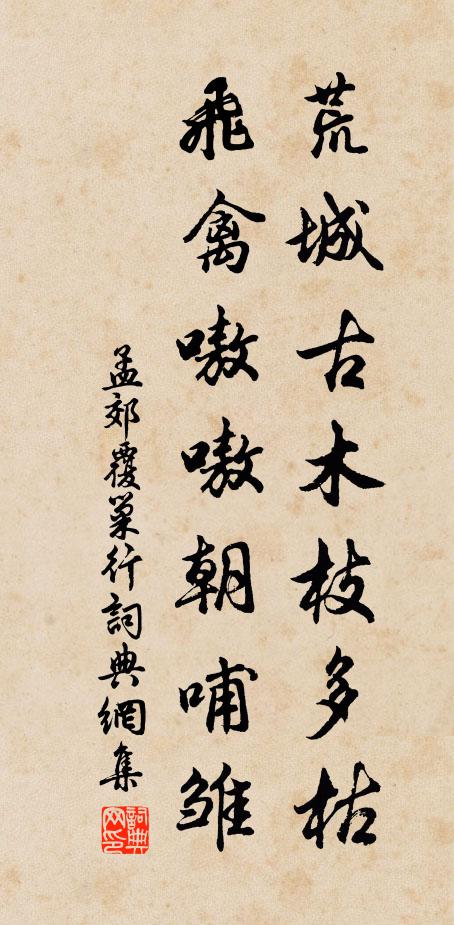 荒城古木枝多枯
飛禽嗷嗷朝哺雏
孟郊覆巢行詞典網集
詞典网印